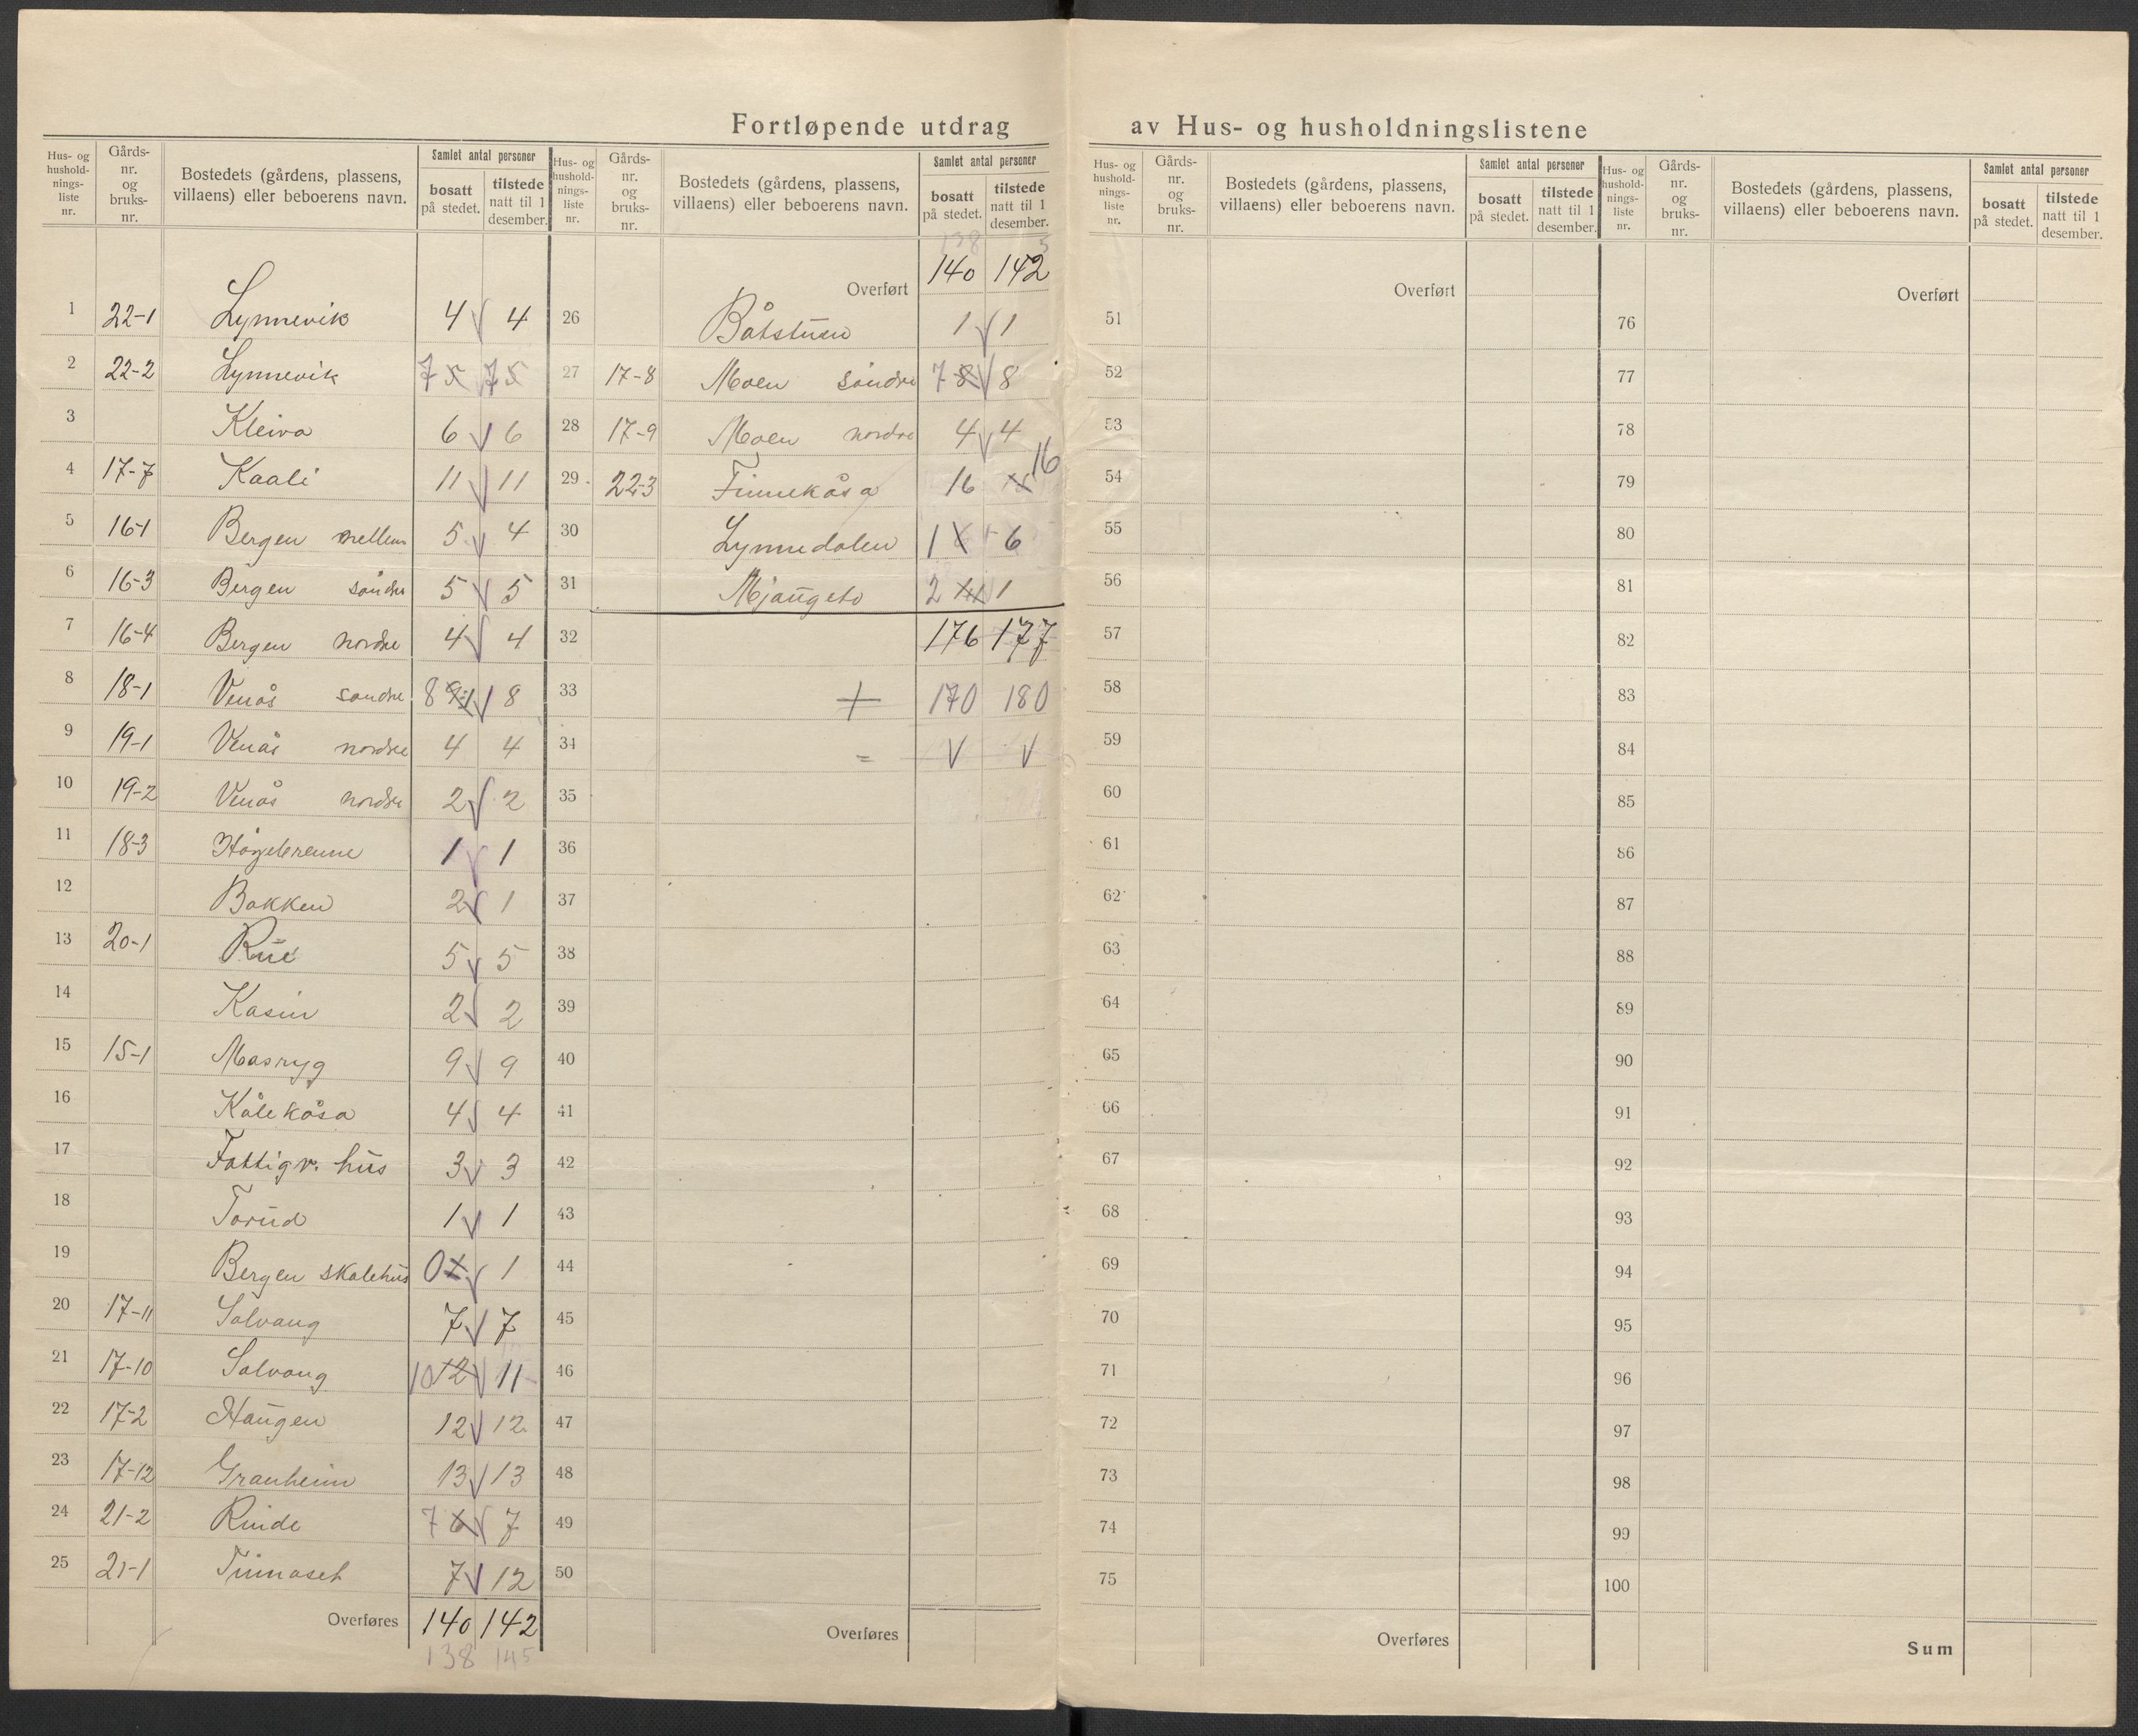 Fortløpende utdrag av Hus- og husholdningslistene
Hus- og husholdnings-liste nr. | Gårds-nr. og bruks-nr. | Bostedets (gårdens, plassens, villaens) eller beboerens navn. | Samlet antal personer | bosatt på stedet. | tilstede natt til 1 desember.
1 22-1 Lynnevik 4 4
2 22-2 Lynnevik 7 5 7 5
3 Kleiva 6 6
4 17-7 Kaali 11 11
5 16-1 Bergen mellem 5 4
6 16-3 Bergen søndre 5 5
7 16-4 Bergen nordre 4 4
8 18-1 Venås søndre 8 9 8
9 19-1 Venås nordre 4 4
10 19-2 Venås nordre 2 2
11 18-3 Högebrenne 1 1
12 Bakken 2 1
13 20-1 Rue 5 5
14 Kasin 2 2
15 15-1 Masryg 9 9
16 Kålekåsa 4 4
17 Fattigv. hus 3 3
18 Torud 1 1
19 Bergen skolehus 0 1
20 17-11 Solvang 7 7
21 17-10 Solvang 10 12 11
22 17-2 Haugen 12 12
23 17-12 Granheim 13 13
24 21-2 Rinde 7 6 7
25 21-1 Finnaset 7 12
Overføres 140 142
138 145
Hus- og husholdnings-liste nr. | Gårds-nr. og bruks-nr. | Bostedets (gårdens, plassens, villaens) eller beboerens navn. | Samlet antal personer | bosatt på stedet. | tilstede natt til 1 desember.
138 5
Overført 140 142
26 Båtstuen 1 1
27 17-8 Moen søndre 7 8 8
28 17-9 Moen nordre 4 4
29 22-3 Finnekåsa 16 16
30 Lynnedalen 1 6
31 Mjaugeto 2 1
32 176 177
33 + 170 180
34 =
35
36
37
38
39
40
41
42
43
44
45
46
47
48
49
50
Overføres
Hus- og husholdnings-liste nr. | Gårds-nr. og bruks-nr. | Bostedets (gårdens, plassens, villaens) eller beboerens navn. | Samlet antal personer | bosatt på stedet. | tilstede natt til 1 desember.
Overført
51
52
53
54
55
56
57
58
59
60
61
62
63
64
65
66
67
68
69
70
71
72
73
74
75
Overføres
Hus- og husholdnings-liste nr. | Gårds-nr. og bruks-nr. | Bostedets (gårdens, plassens, villaens) eller beboerens navn. | Samlet antal personer | bosatt på stedet. | tilstede natt til 1 desember.
Overført
76
77
78
79
80
81
82
83
84
85
86
87
88
89
90
91
92
93
94
95
96
97
98
99
100
Sum